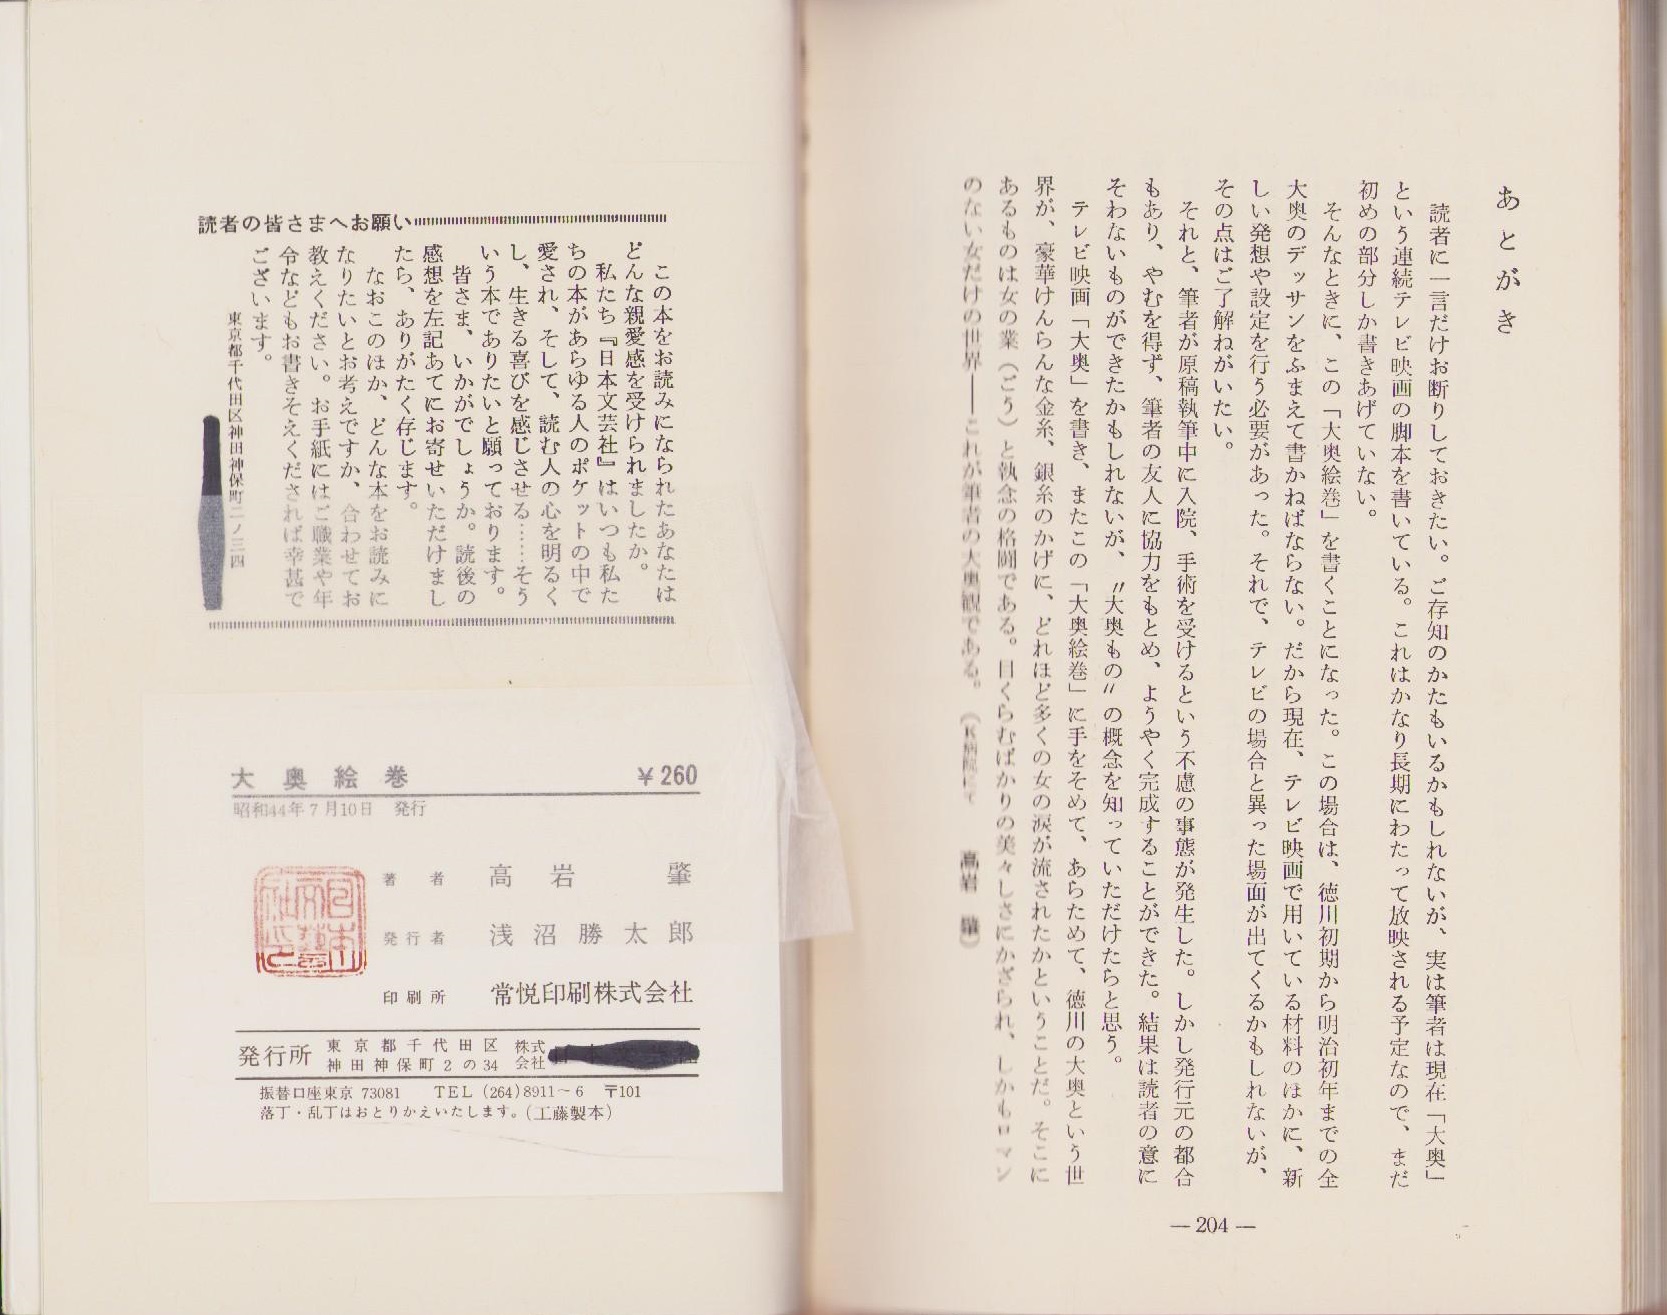 あとがき
読者に一言だけお断りしておきたい。ご存知のかたもいるかもしれないが、実は筆者は現在「大奥」
という連続テレビ映画の脚本を書いている。これはかなり長期にわたって放映される予定なので、まだ
初めの部分しか書きあげていない。
そんなときに、この「大奥絵巻」を書くことになった。この場合は、徳川初期から明治初年までの全
大奥のデッサンをふまえて書かねばならない。だから現在、テレビ映画で用いている材料のほかに、新
しい発想や設定を行う必要があった。それで、テレビの場合と異った場面が出てくるかもしれないが、
その点はご了解ねがいたい。
それと、筆者が原稿執筆中に入院、手術を受けるという不慮の事態が発生した。しかし発行元の都合
もあり、やむを得ず、筆者の友人に協力をもとめ、ようやく完成することができた。結果は読者の意に
そわないものができたかもしれないが、〃大奥もの〃の概念を知っていただけたらと思う。
テレビ映画「大奥」を書き、またこの「大奥絵巻」に手をそめて、あらためて、徳川の大奥という世
界が、豪華けんらんな金糸、銀糸のかげに、どれほど多くの女の涙が流されたかということだ。そこに
あるものは女の業（ごう）と執念の格闘である。目くらむばかりの美々しさにかざられ、しかもロマン
のない女だけの世界――これが筆者の大奥観である。（K病院にて　高岩　肇）
— 204 —
読者の皆さまへお願い
この本をお読みになられたあなたは
どんな親愛感を受けられましたか。
私たち『日本文芸社』はいつも私た
ちの本があらゆる人のポケットの中で
愛され、そして、読む人の心を明るく
し、生きる喜びを感じさせる……そう
いう本でありたいと願っております。
皆さま、いかがでしょうか。読後の
感想を左記あてにお寄せいただけまし
たら、ありがたく存じます。
なおこのほか、どんな本をお読みに
なりたいとお考えですか、合わせてお
教えください。お手紙にはご職業や年
令などもお書きそえくだされば幸甚で
ございます。
東京都千代田区神田神保町二ノ三四
大奥絵巻　¥260
昭和44年7月10日　発行
著者　高岩　肇
発行者　浅沼勝太郎
印刷所　常悦印刷株式会社
発行所　東京都千代田区神田神保町2の34　株式会社
振替口座東京 73081　TEL (264)8911～6　〒101
落丁・乱丁はおとりかえいたします。(工藤製本)